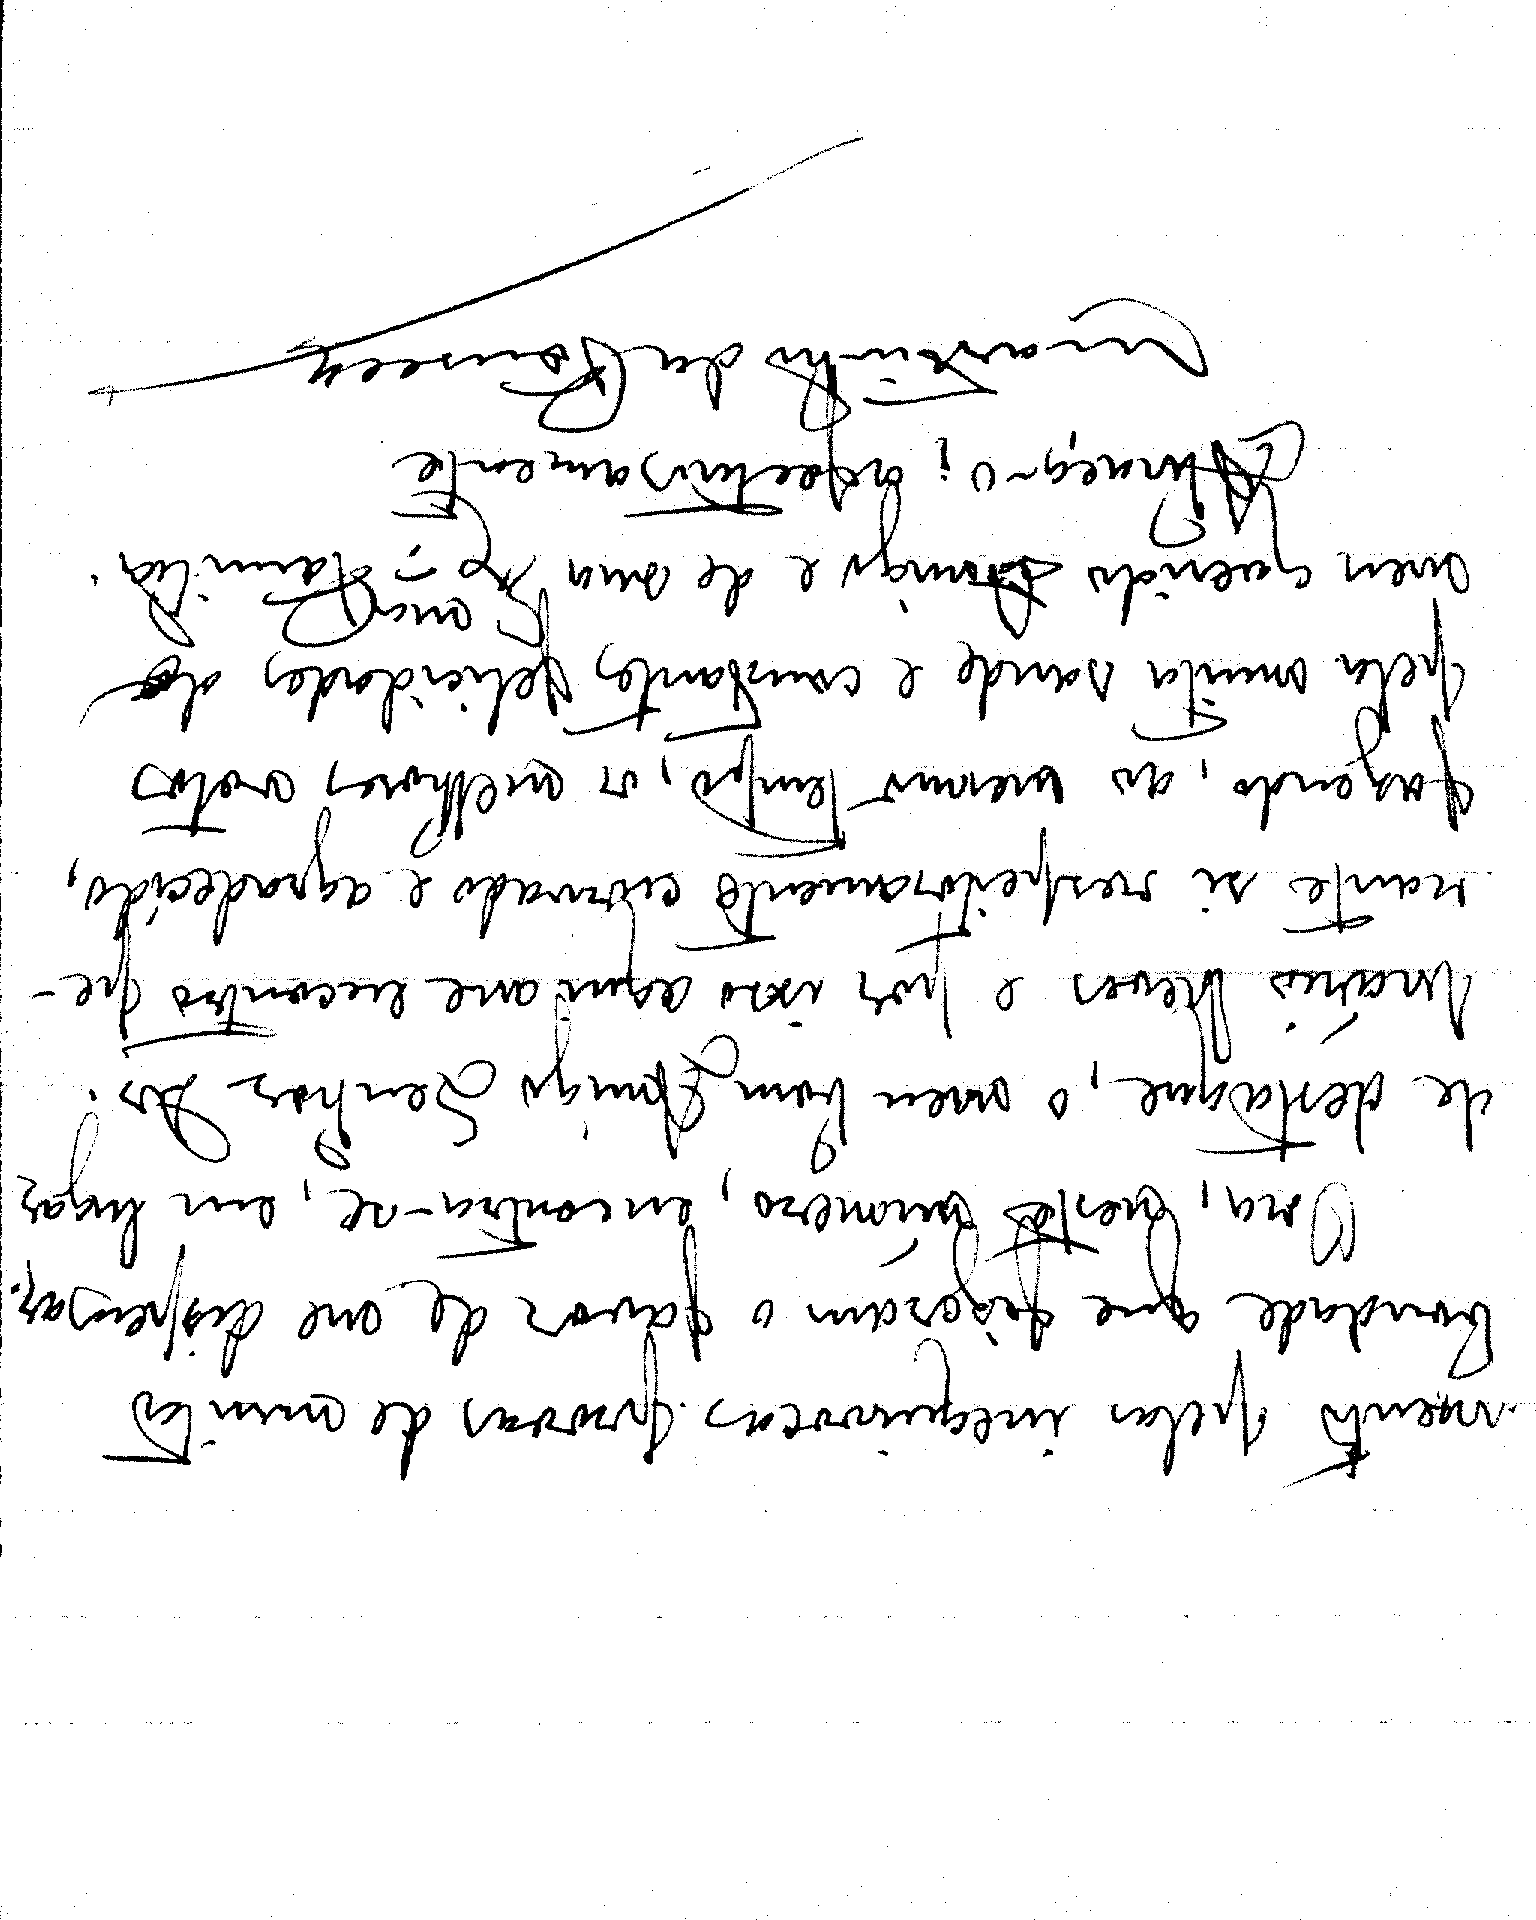 mento pelas inequivocas provas de muita
bondade que fizeram o favor de me dispensar.
Ora, neste número, encontra-se, em lugar
de destaque, o meu bom Amigo Senhor Dr.
Mário Neves e por isso aqui me encontro pe-
rante si respeitosamente curvado e agradecido,
fazendo, ao mesmo tempo, os melhores votos
pela muita saude e constantes felicidades do
meu querido Amigo e de sua Exma Familia.
Abraça-o, afectuosamente
Martinho da Fonseca